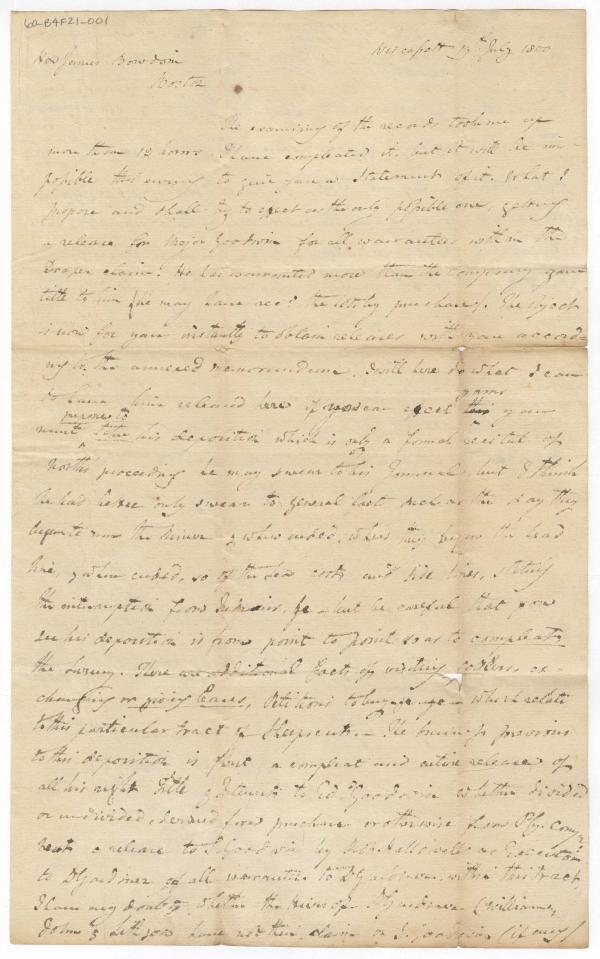 60-B4F21-001
Wiscassett 19th July 1800
Hon James Bowdoin
Boston
The examining of the records took me up
more than 12 hours I have compleated it, but it will be im-
possible this evening to give you a Statement of it. What I
propose and shall try to effect as the only possible one, getting
a release for Major Goodwin for all warrantees within the
Draper claim. He has warranted more than the company gave
title to him he may have recd the rest by purchase. The object
is now for you instantly to obtain releases with you accord-
ing to the annexed memorandum. I will here do what I can
to have him released here if you can effect this
must propose to his deposition which is only a formal recital of
North's proceeding he may swear to his Journal, but I think
he had better only swear to general facts such as the day they
began to run the River & when ended, when they began the head
line, & when ended, so of the sea coast and side lines, stating
the interruption from Indians, &c - but be careful that you
see his deposition is from point to point so as to compleat
the survey. There are additional facts of writing letters, ex-
changing or giving Leases, Petitions which relate
to this particular tract or Sheepscutt - The business previous
to this deposition is first a compleat and entire release of
all his right Title & Interest to Ed Goodwin whether divided
or undivided, derived from purchase or otherwise from Ply. Compy
next a release to S Goodwin by Hallowell as Executor
to D Gardiner of all warrantees to Gardiner, within this tract,
I have my doubts, whether the Heirs of Gardiner (William,
John & Lithgow have not their claim on S. Goodwin (if any)